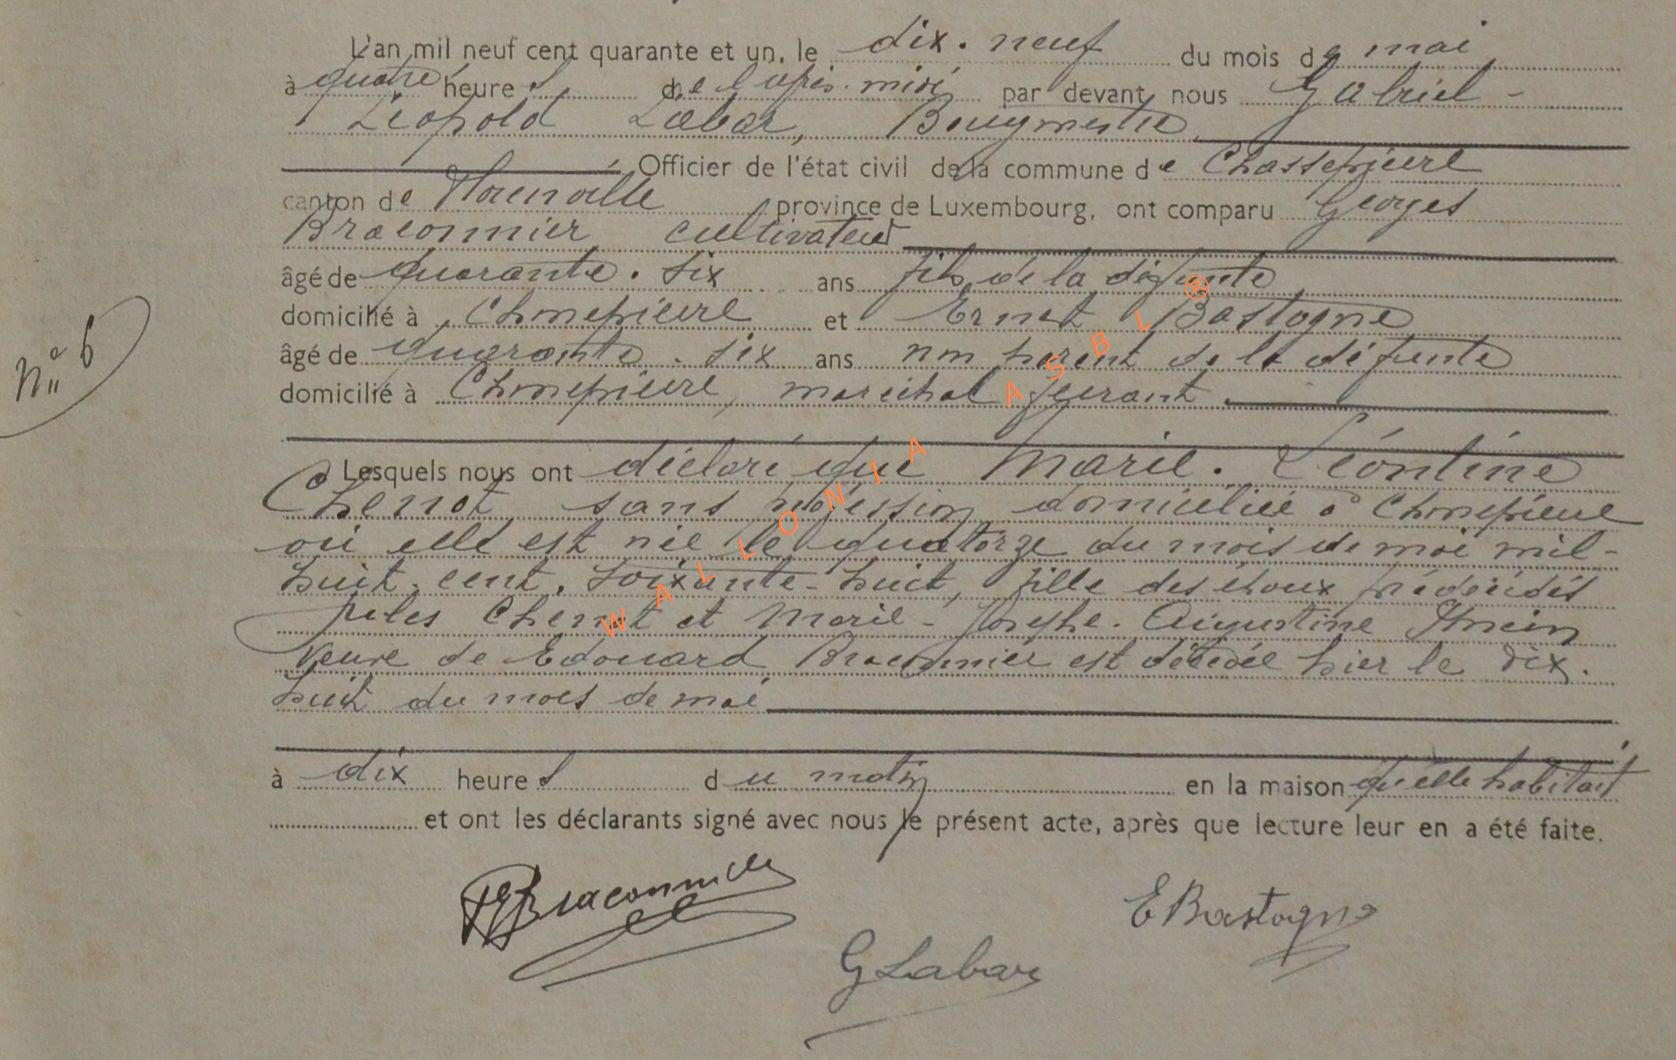 L'an mil neuf cent quarante et un, le dix. neuf du mois de mai
à quatre heures de l'après-midi par devant nous Gabriel -
Léopold Labar, Bourgmestre
Officier de l'état civil de la commune de Chassepierre
canton de Florenville province de Luxembourg, ont comparu Georges
Braconnier cultivateur
âgé de quarante. six ans fils de la défunte
domicilié à Chassepierre et Ernest Bastogne
âgé de quarante. six ans non parent de la défunte
N° 6
domicilié à Chassepierre, maréchal ferrant.
Lesquels nous ont déclaré que Marie. Léontine
Chenot sans profession domiciliée à Chassepierre
où elle est née le quatorze du mois de mai mil-
huit. cent. soixante-huit, fille des époux prédécédés
Jules Chenot et Marie-Josephe. Augustine
Veuve de Edouard Braconnier est décédée hier le dix.
huit du mois de mai
à dix heures du matin en la maison qu'elle habitait
et ont les déclarants signé avec nous le présent acte, après que lecture leur en a été faite.
Braconnier
E Bastogne
G Labar
WALLONIA ASBL ®